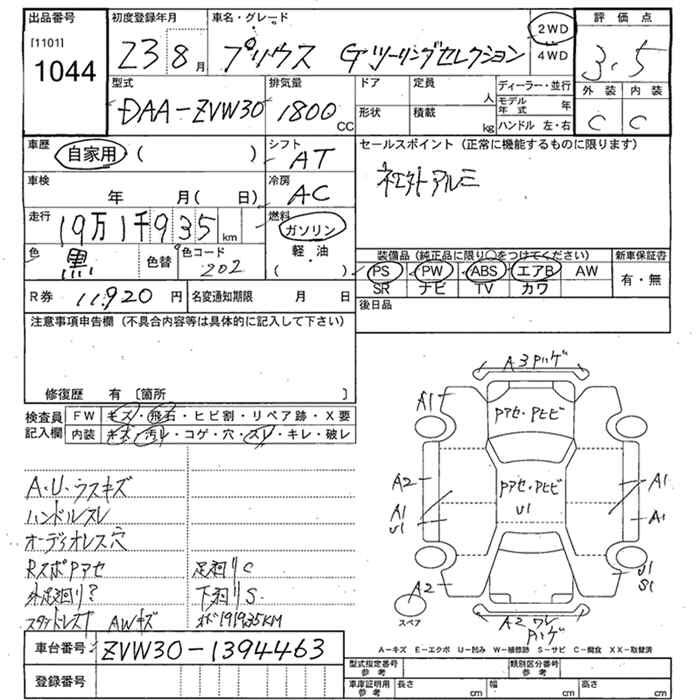 出品番号
[1101]
1044
初度登録年月
23 8月
車名・グレード
プリウス Gツーリングセレクション
2WD
4WD
評価点
3.5
外装 内装
C C
型式
DAA-ZVW30
排気量
1800 CC
ドア 定員 人
形状 積載 kg
ディーラー・並行
モデル年式 年
ハンドル 左・右
車歴
自家用 ( )
シフト
AT
車検
年 月( 日)
冷房
AC
走行
19万1千935 km
燃料
ガソリン
軽・油
( )
色
黒 色替
色コード
202
R券 11,920 円
名変通知期限 月 日
セールスポイント (正常に機能するものに限ります)
社外アルミ
装備品 (純正品に限り○をつけてください)
PS PW ABS エアB AW
SR ナビ TV カワ
新車保証書
有・無
後日品
注意事項申告欄 (不具合内容等は具体的に記入して下さい)
修復歴 有 〔箇所 〕
検査員記入欄
FW キズ・飛石・ヒビ割・リペア跡・X要
内装 キズ・汚レ・コゲ・穴・スレ・キレ・破レ
A・U・ウスキズ
ハンドルスレ
オーディオレス穴
RスポPアセ
外足廻り?
スタッドレス AWキズ
足廻りC
下廻りS
191935KM
車台番号 ZVW30-1394463
登録番号
A3 Pハゲ
A1
Pアセ・Pヒビ
A2
A1
U1
Pアセ・Pヒビ
U1
A1
A1
A2
U1
S1
スペア
A2 ワレ
Pハゲ
A-キズ E-エクボ U-凹み W-補修跡 S-サビ C-腐食 XX-取替済
型式指定番号 参考
類別区分番号 参考
車庫証明用 参考 長さ cm 幅 cm 高さ cm